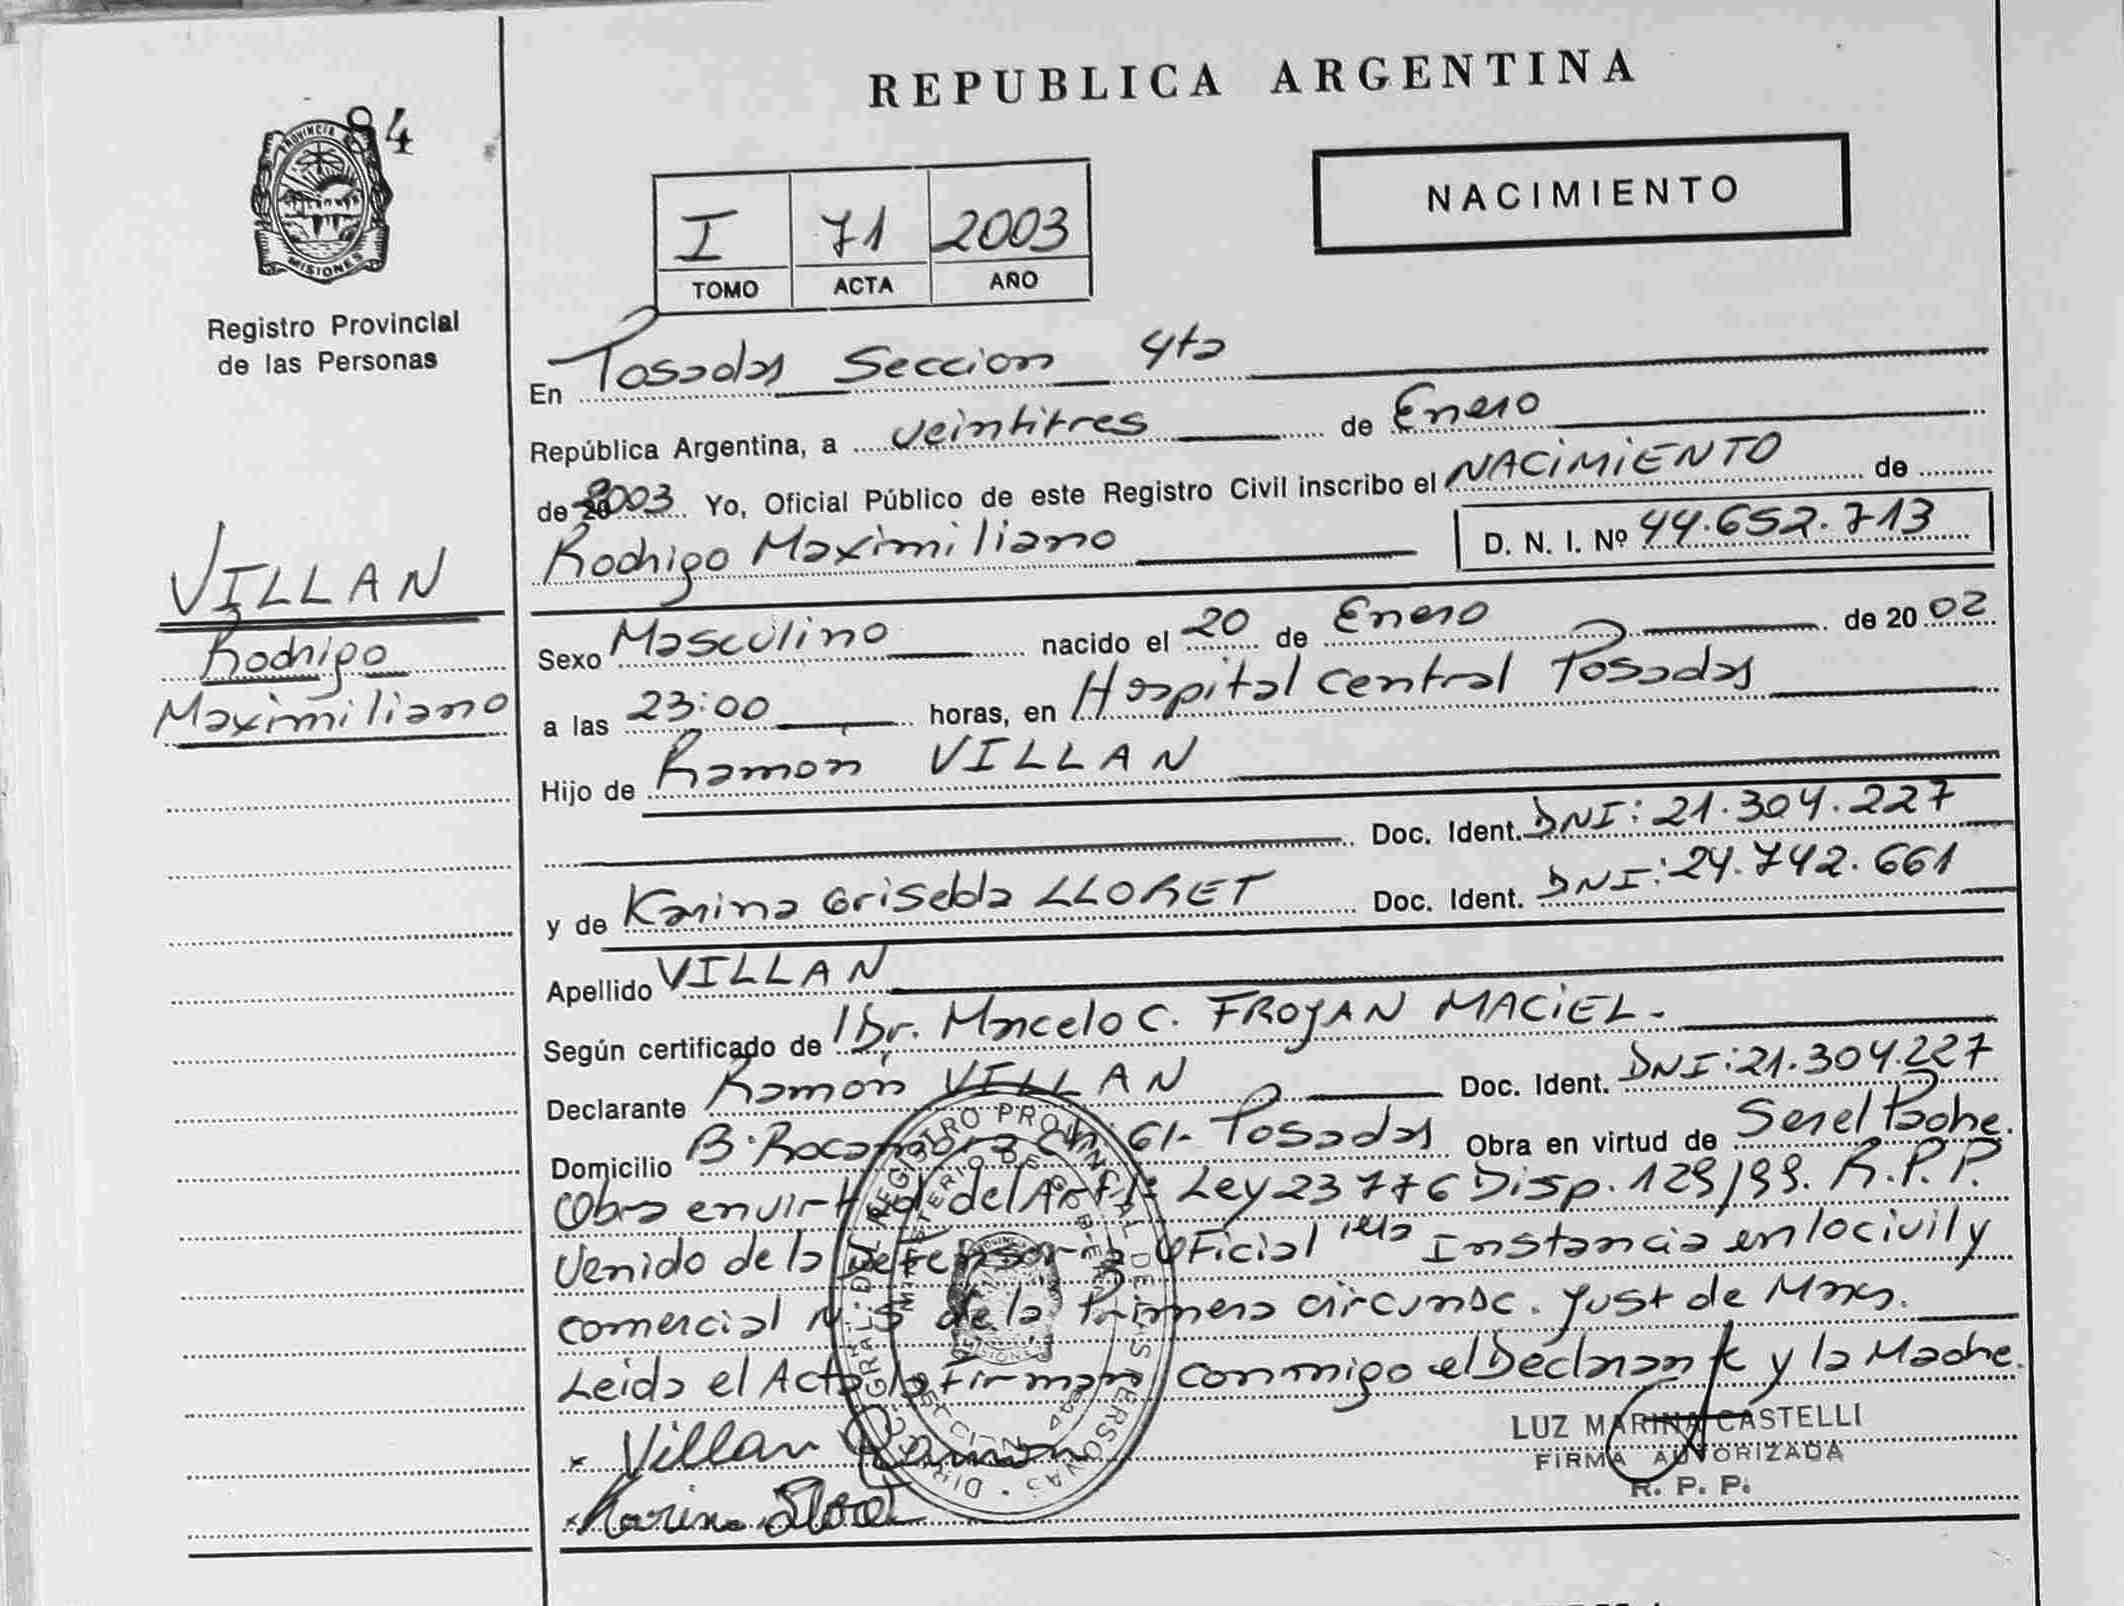 REPUBLICA ARGENTINA
84
PROVINCIA DE
MISIONES
Registro Provincial
de las Personas
NACIMIENTO
I 71 2003
TOMO ACTA AÑO
En Posadas Seccion 4ta
República Argentina, a veintitres de Enero
de 2003 Yo, Oficial Público de este Registro Civil inscribo el NACIMIENTO de
Rodrigo Maximiliano D. N. I. Nº 44.652.713
VILLAN
Rodrigo
Maximiliano
Sexo Masculino nacido el 20 de Enero de 20 02
a las 23:00 horas, en Hospital Central Posadas
Hijo de Ramón VILLAN
Doc. Ident. DNI: 21.304.227
y de Karina Griselda LLORET Doc. Ident. DNI: 24.742.661
Apellido VILLAN
Según certificado de Dr. Marcelo C. FROYAN MACIEL.
Declarante Ramón VILLAN Doc. Ident. DNI: 21.304.227
Domicilio B. 61- Posadas Obra en virtud de Ser el Padre.
Obra en virtud del Art. 1º Ley 23776 Disp. 129/99. R.P.P.
Venido de la Defensoria Oficial 1era Instancia en lo civil y
comercial de la Primera circunsc. Just de Mnes.
Leida el Acta la Firman conmigo el Declarante y la Madre.
x Villan Ramon
x Karina Lloret
LUZ MARINA CASTELLI
FIRMA AUTORIZADA
R. P. P.
DIRECC. GRAL. DEL REGISTRO PROVINCIAL DE LAS PERSONAS
MINISTERIO DE GOBIERNO
MISIONES